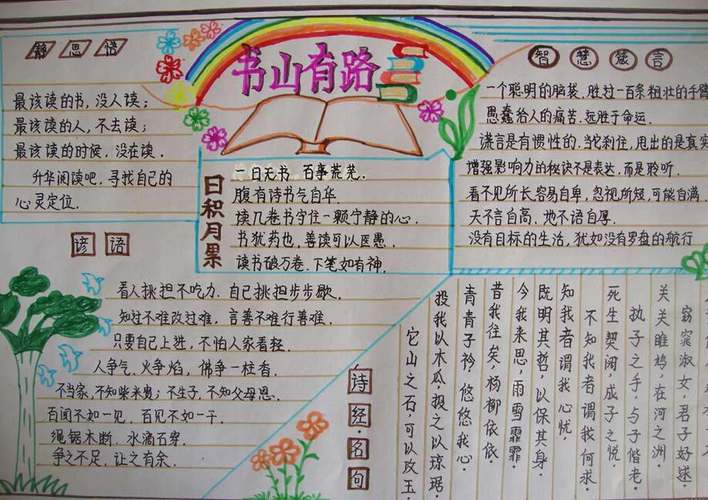 书山有路
静思语
最该读的书，没人读；
最该读的人，不去读；
最该读的时候，没在读．
升华阅读吧，寻找自己的
心灵定位．
日积月累
一日无书，百事荒芜．
腹有诗书气自华．
读几卷书字住一颗宁静的心．
书犹药也，善读可以医愚．
读书破万卷．下笔如有神．
智慧箴言
一个聪明的脑袋，胜过一百条粗壮的手臂
愚蠢给人的痛苦，远胜于命运．
谎言是有惯性的，当刹住，甩出的是真实
增强影响力的秘诀不是表达，而是聆听．
看不见所长容易自卑，忽视所短，可能自满．
天不言自高．地不语自厚．
没有目标的生活，犹如没有罗盘的航行
谚语
看人挑担不吃力．自己挑担步步歇．
知过不难改过难，言善不难行善难．
只要自己上进，不怕人家看轻．
人争气，火争焰，佛争一柱香．
不当家，不知柴米贵；不生子，不知父母恩．
百闻不如一见，百见不如一干．
绳锯木断．水滴石穿．
争之不足，让之有余．
诗经名句
窈窕淑女，君子好逑
关关雎鸠，在河之洲．
执子之手，与子偕老
死生契阔，成子之悦
不知我者谓我何求．
知我者谓我心忧
既明其哲，以保其身．
今我来思，雨雪霏霏
昔我往矣，杨柳依依．
青青子衿，悠悠我心．
投我以木瓜，报之以琼琚．
它山之石，可以攻玉．